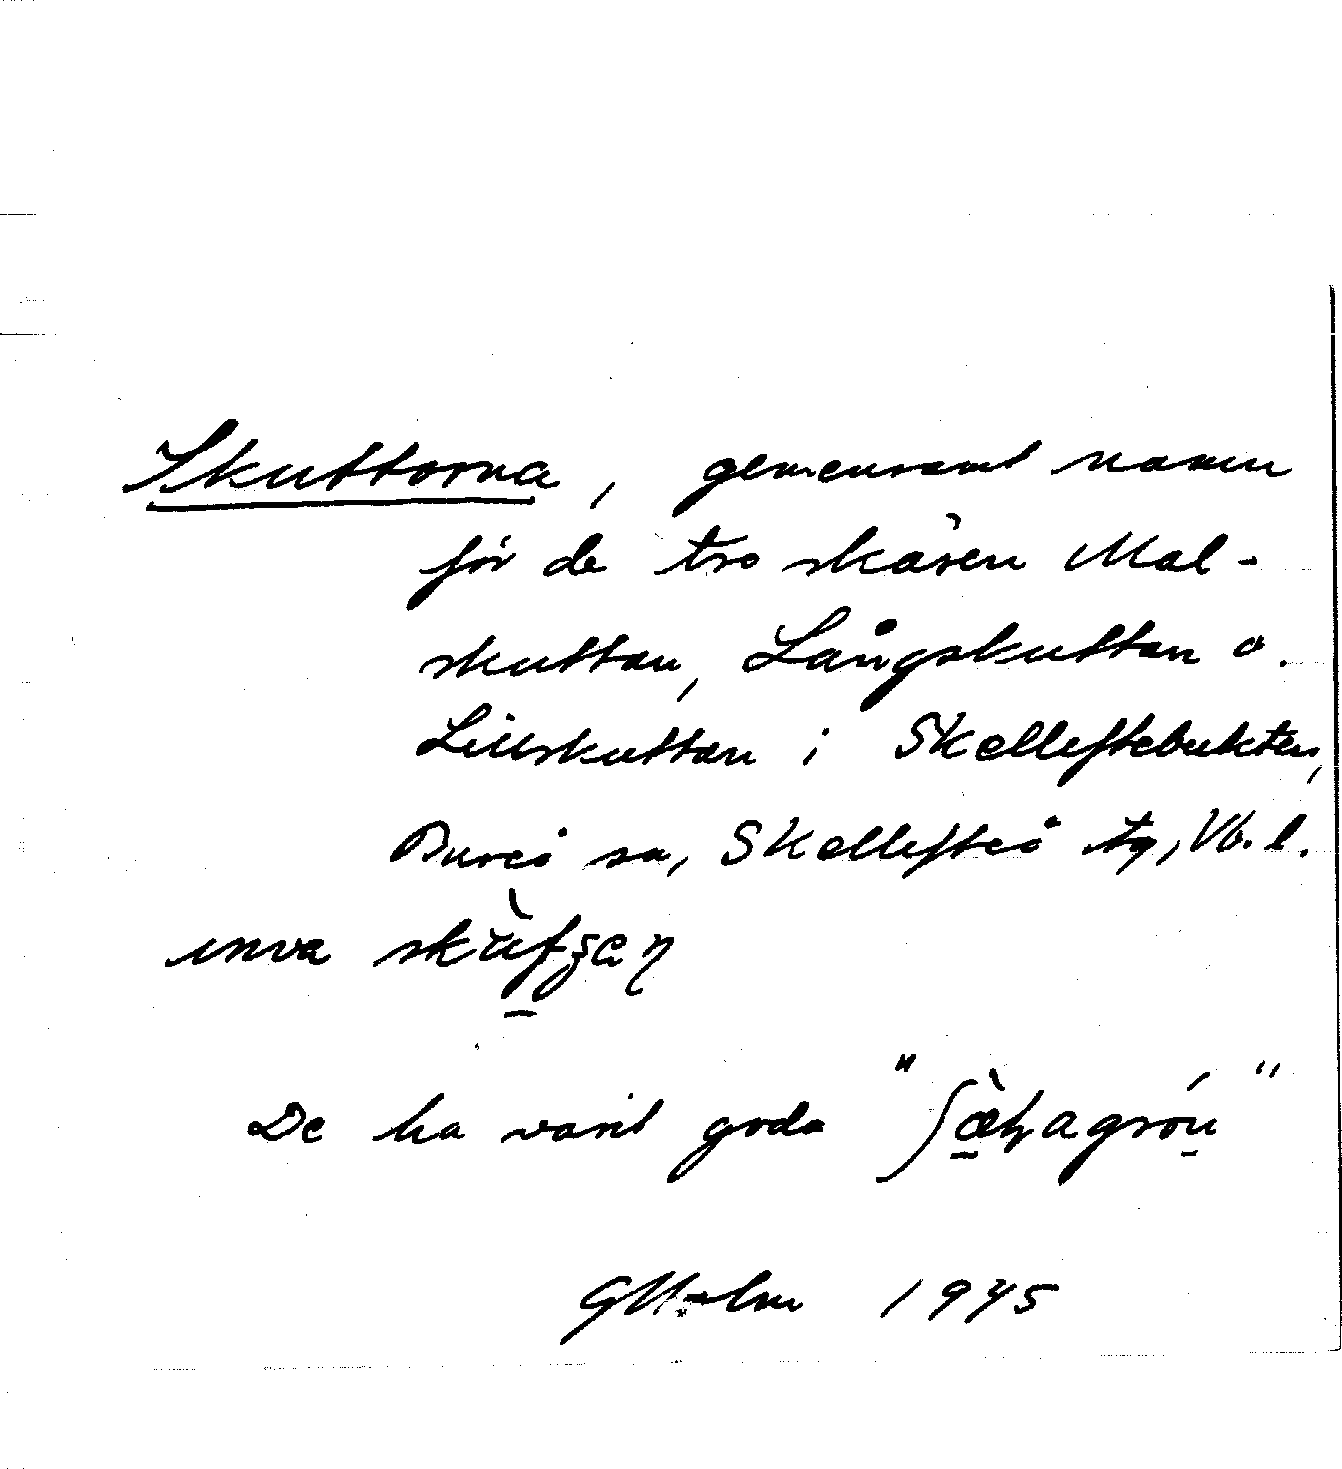 Skuttorna, gemensamt namn
för de tre skären Mal-
skuttan, Långskuttan o.
Lillskuttan i Skelleftebukten,
Bureå sn, Skellefteå tg, Vb. l.
De ha varit goda
GHolm 1945